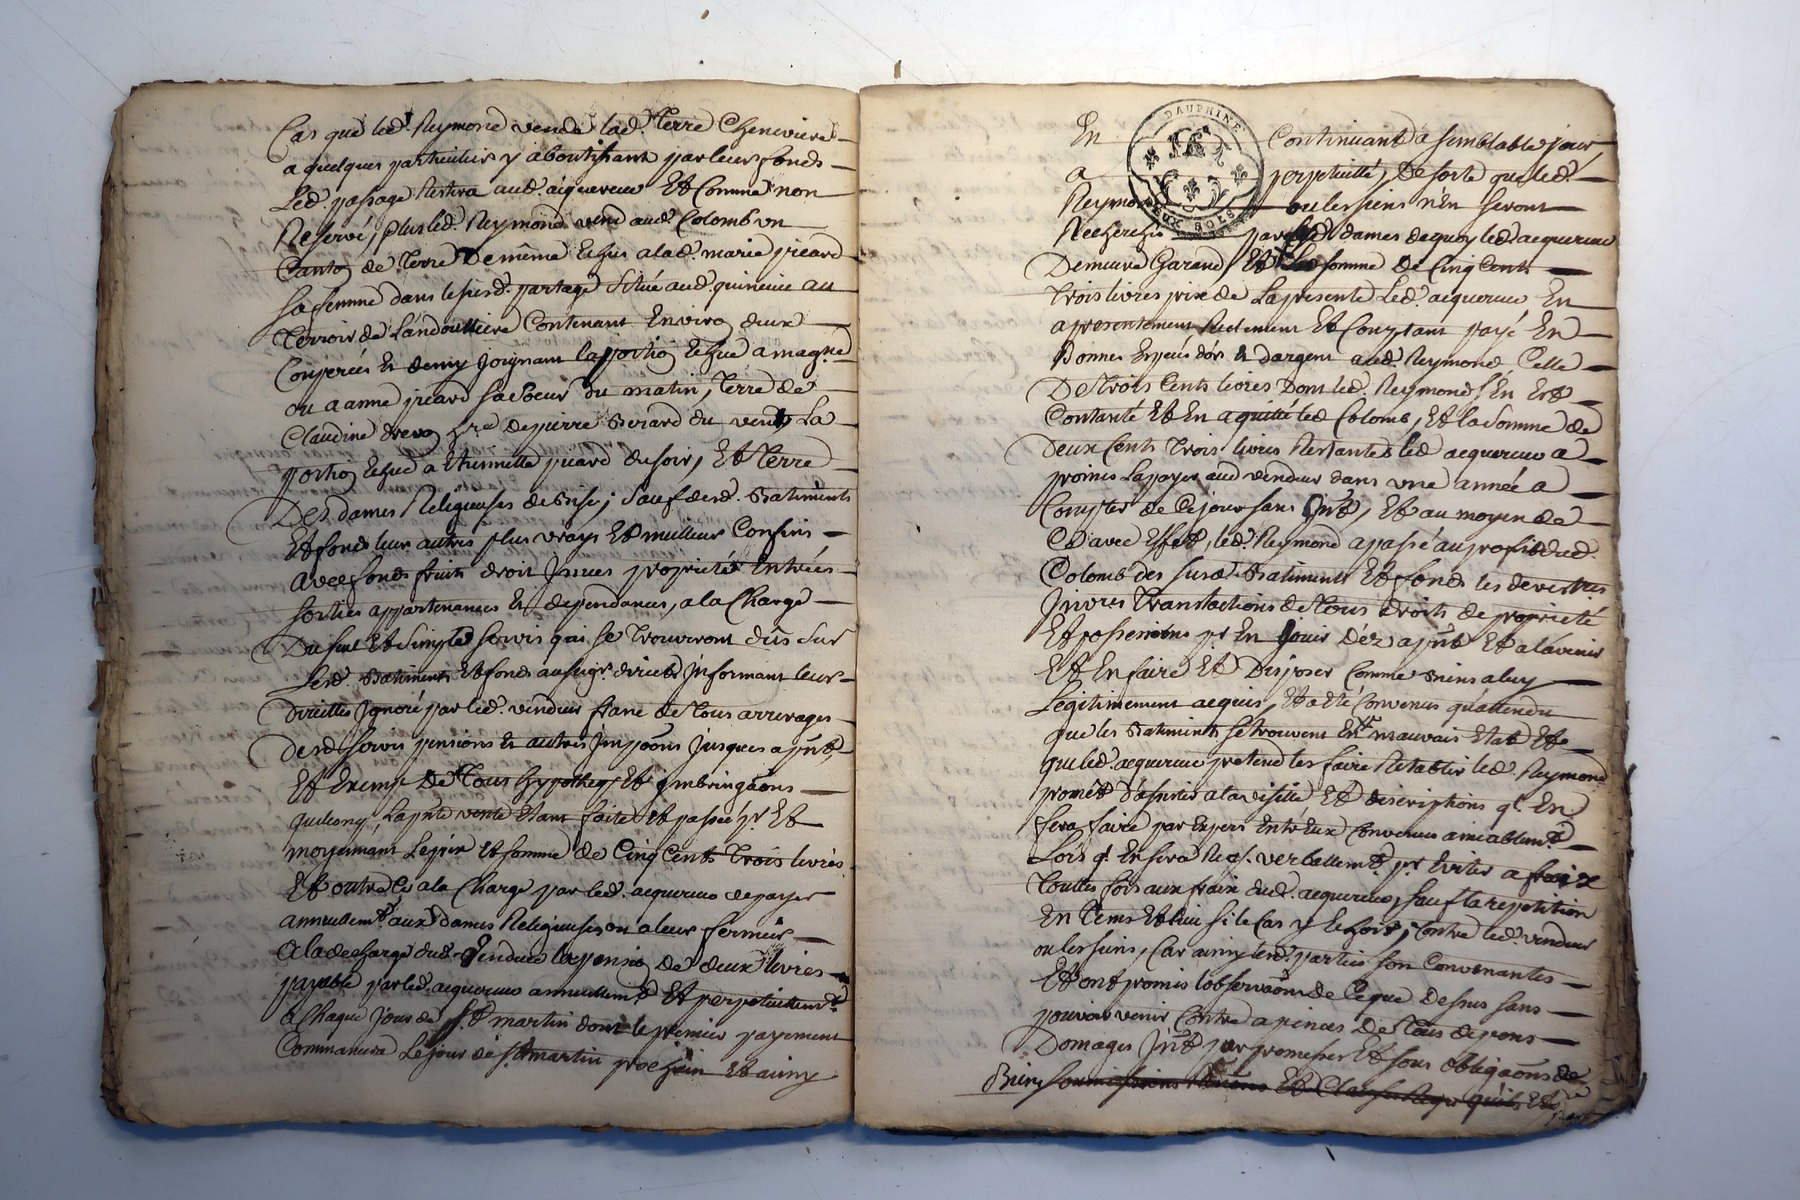 Cas que led. Reymond vende lad. Terre Cheneviere
a quelques particuliers y aboutissant par leurs fonds
Led. passage Restera aud. aquereur Et Comme non
Reservé, plus led. Reymond vend aud. Colomb un
Canton de Terre de même Echus a lad. marie picard
sa femme dans le susd. partage Situé aud. au
Terroir de Contenant Environ deux
Couperées Et demy Joignant la portion Echue a magne
ou a anne picard sa Soeur du matin, Terre de
Claudine de pierre du vent La
portion Echue a picard du soir, Et Terre
Des dames Religieuses de sauf desd. Batiments
Et fonds leur autres plus vrays Et meilleurs Confins
avec fonds fruits droit Jssues proprieté Entrées
sorties appartenances Et dependances, a la Charge
Du seul Et Simple servis qui se trouveront dus sur
Lesd. Batiments Et fonds au seigr. direct Informant leurs
Directes Jgnoré par led. vendeur franc de Tous arrerages
Desd. servis pensions Et autres Jmpõons Jusques a pñt
Et Exemp de Tous hypotheq Et
quelconq, La pñte vente Etant faite Et passée pr. Et
moyennant Le prix Et somme de Cinq Cents Trois livres
Et outre Ce a la Charge par led. aquereur de payer
annuellemt. aux dames Religieuses ou a leur fermier
a la decharge dud. Vendeur la pension de deux livres
payable par led. aquereur annuellemt Et perpetuellemt.
a Chaque Jour de St martin dont le premier payement
Commancera Le jour de St martin prochain Et ainsy
En Continuant a semblable jour
DAUPHINE
DEUX SOLS
a perpetuitté, De sorte que led.
Reymond ou les siens n'En seront
Recherchés par lesd. dames de quoy led. aquereur
Demeure Garand, Et somme de Cinq Cents
Trois livres prix de La presente Led. aquereur En
a presentement Reelement Et Comptant payé En
Bonnes Especes d'or Et d'argent aud. Reymond Celle
De Trois Cents livres Dont led. Reymond S'En Est
Contanté Et En a quitté led. Colomb, Et la Somme de
Deux Cents Trois livres Restantes led. aquereur a
promis La payer aud. vendeur dans une année a
Compter de Ce jour sans Jnt., Et au moyen de
Ce avec Effet, led. Reymond a passé au profit dud.
Colomb des susd. Batiments Et fonds les devestures
Jnvest. Translactions de Tous droits de proprieté
Et possessions pr. En Jouir dez a pñt Et a l'avenir
Et En faire Et Disposer Comme Siens a luy
Legitimement acquis, Et a Eté Convenus qu'attendu
que les Batiments se trouvent En mauvais Etat Et
que led. aquereur pretend les faire Retablir led. Reymond
promet d'assister a la visitte Et descriptions q'. En
sera faite par Expers Entr'Eux Convenus amiablemt.
Lors q'. En sera Req. verballemt. pr. Eviter a fraix
Touttes fois aux fraix dud. aquereur, sauf la repetition
En Tems Et lieu si le Cas y Echoit, Contre led. vendeur
ou les siens, Car ainsy lesd. parties son Convenantes
Et ont promis l'observãon de Ce que Dessus sans
pouvoir venir Contre a peines De Tous depens
Domages Jnt. par promesses Et sous obligãons de
Biens soumissions Et Clauses